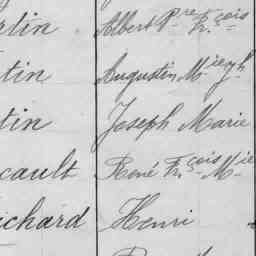 rtin Albert Pre Fr.çois
tin Augustin Mie Jh
tin Joseph Marie
cault René Fr.çois Mie
ichard Henri